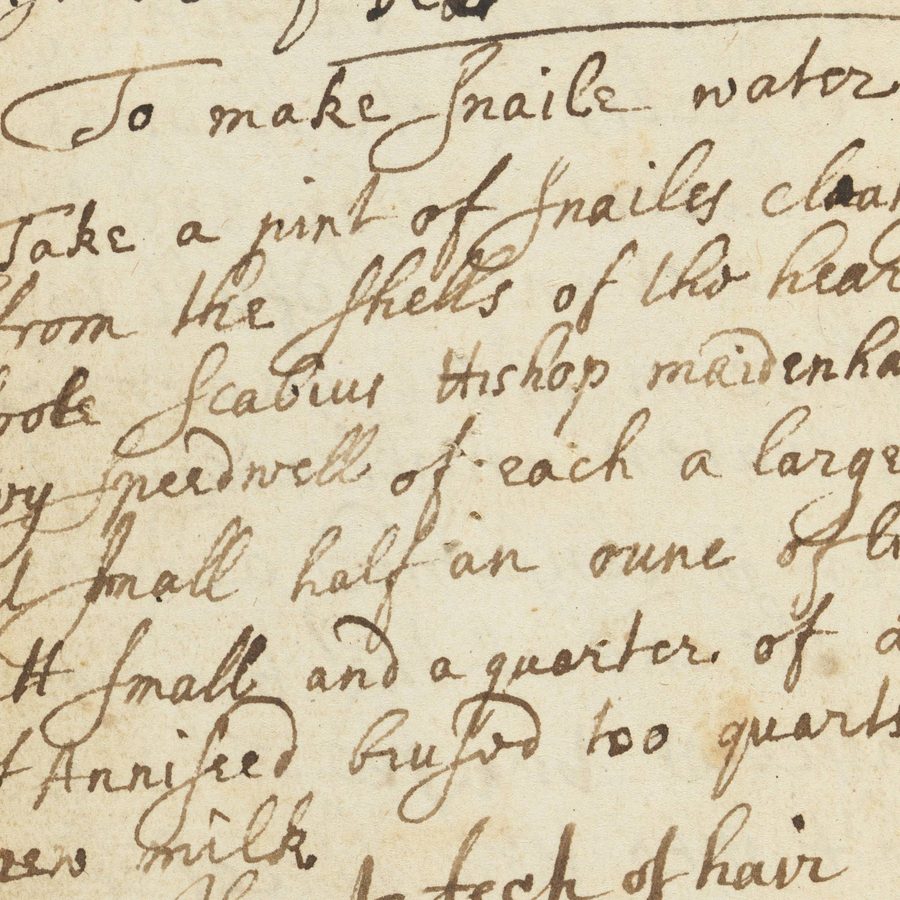 To make Snaile water
Take a pint of Snailes clean
from the Shells of the hear
Scabius Hishop maidenha
Speedwell of each a large
Small half an oune of
Small and a quarter of a
Anniseed brused too quarts
new milk
fech of hair